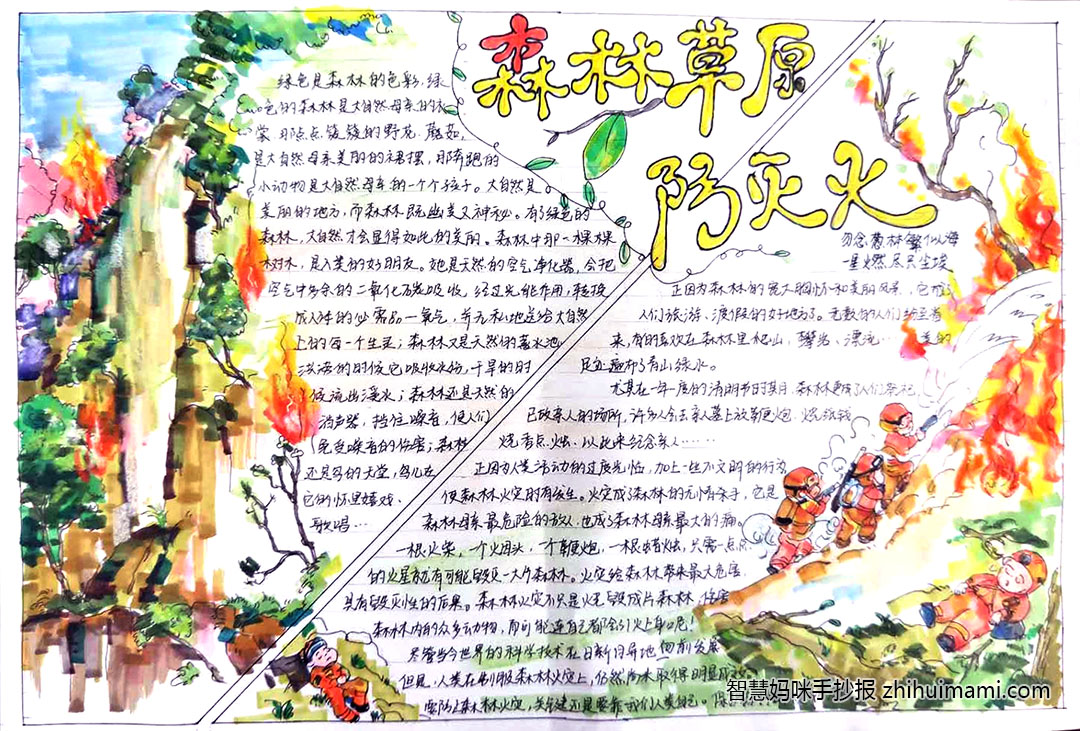 森林草原
防灭火
绿色是森林的色彩,绿
色的森林是大自然母亲的衣
裳,那点点簇簇的野花、蘑菇,
是大自然母亲美丽的裙摆,那奔跑的
小动物是大自然母亲的一个个孩子。大自然是
美丽的地方,而森林既幽美又神秘。有了绿色的
森林,大自然才会显得如此的美丽。森林中那一棵棵
树木,是人类的好朋友。她是天然的空气净化器,会把
空气中多余的二氧化碳吸收,经过光能作用,转换
成人体的必需品—氧气,并无私地送给大自然
上的每一个生灵;森林又是天然的蓄水池
洪涝的时候它吸收水份,干旱的时
候流出溪水;森林还是天然的
消声器,挡住噪音,使人们
免受噪音的伤害;森林
还是鸟的天堂,鸟儿在
它的怀里嬉戏、
歌唱…
勿念葱林繁似海
一星火燃尽只尘埃
正因为森林的宽大胸怀和美丽风景,它成了
人们旅游、渡假的好地方。无数的人们纷至沓
来,有的喜欢在森林里爬山,攀岩、漂流…美的
足迹遍布了青山绿水。
尤其在一年一度的清明节时期,森林更成了人们祭祀
已故亲人的场所,许多人会去亲人墓上放鞭炮、烧纸钱
烧香点烛,以此来纪念亲人……
正因为人类活动的过度光临,加上一些不文明的行为
使森林火灾时有发生。火灾成了森林的无情杀手,它是
森林母亲最危险的敌人,也成了森林母亲最大的痛。
一根火柴,一个烟头,一个鞭炮,一根蜡烛,只需一点点
的火星就有可能毁灭一大片森林。火灾给森林带来最大危害,
具有毁灭性的后果。森林火灾不只是烧毁成片森林,伤害
森林内的众多动物,而可能连自己都会引火上身呢!
尽管当今世界的科学技术在日新月异地向前发展
但是,人类在制服森林火灾上,仍然尚未取得明显成
要防止森林火灾,关键还是要靠我们人类自己。
智慧妈咪手抄报 zhihuimami.com